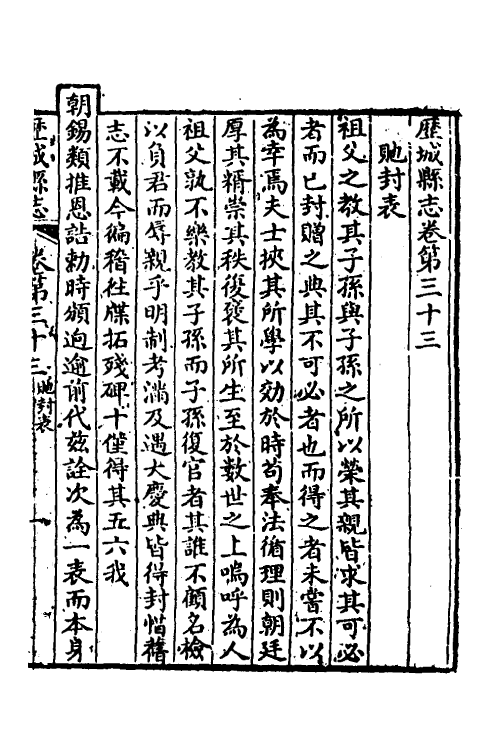 歷城縣志卷第三十三
貤封表
祖父之教其子孫與子孫之所以榮其親皆求其可必
者而已封贈之典其不可必者也而得之者未嘗不以
為幸焉夫士挾其所學以効於時苟奉法循理則朝廷
厚其糈崇其秩復褒其所生至於數世之上嗚呼為人
祖父孰不樂教其子孫而子孫復官者其誰不顧名檢
以負君而辱親乎明制考滿及遇大慶典皆得封惜舊
志不載今徧稽徃牒拓殘碑十僅得其五六我
朝錫類推恩誥勅時頒逈逾前代兹詮次為一表而本身
歷城縣志 卷第三十三 貤封表 一